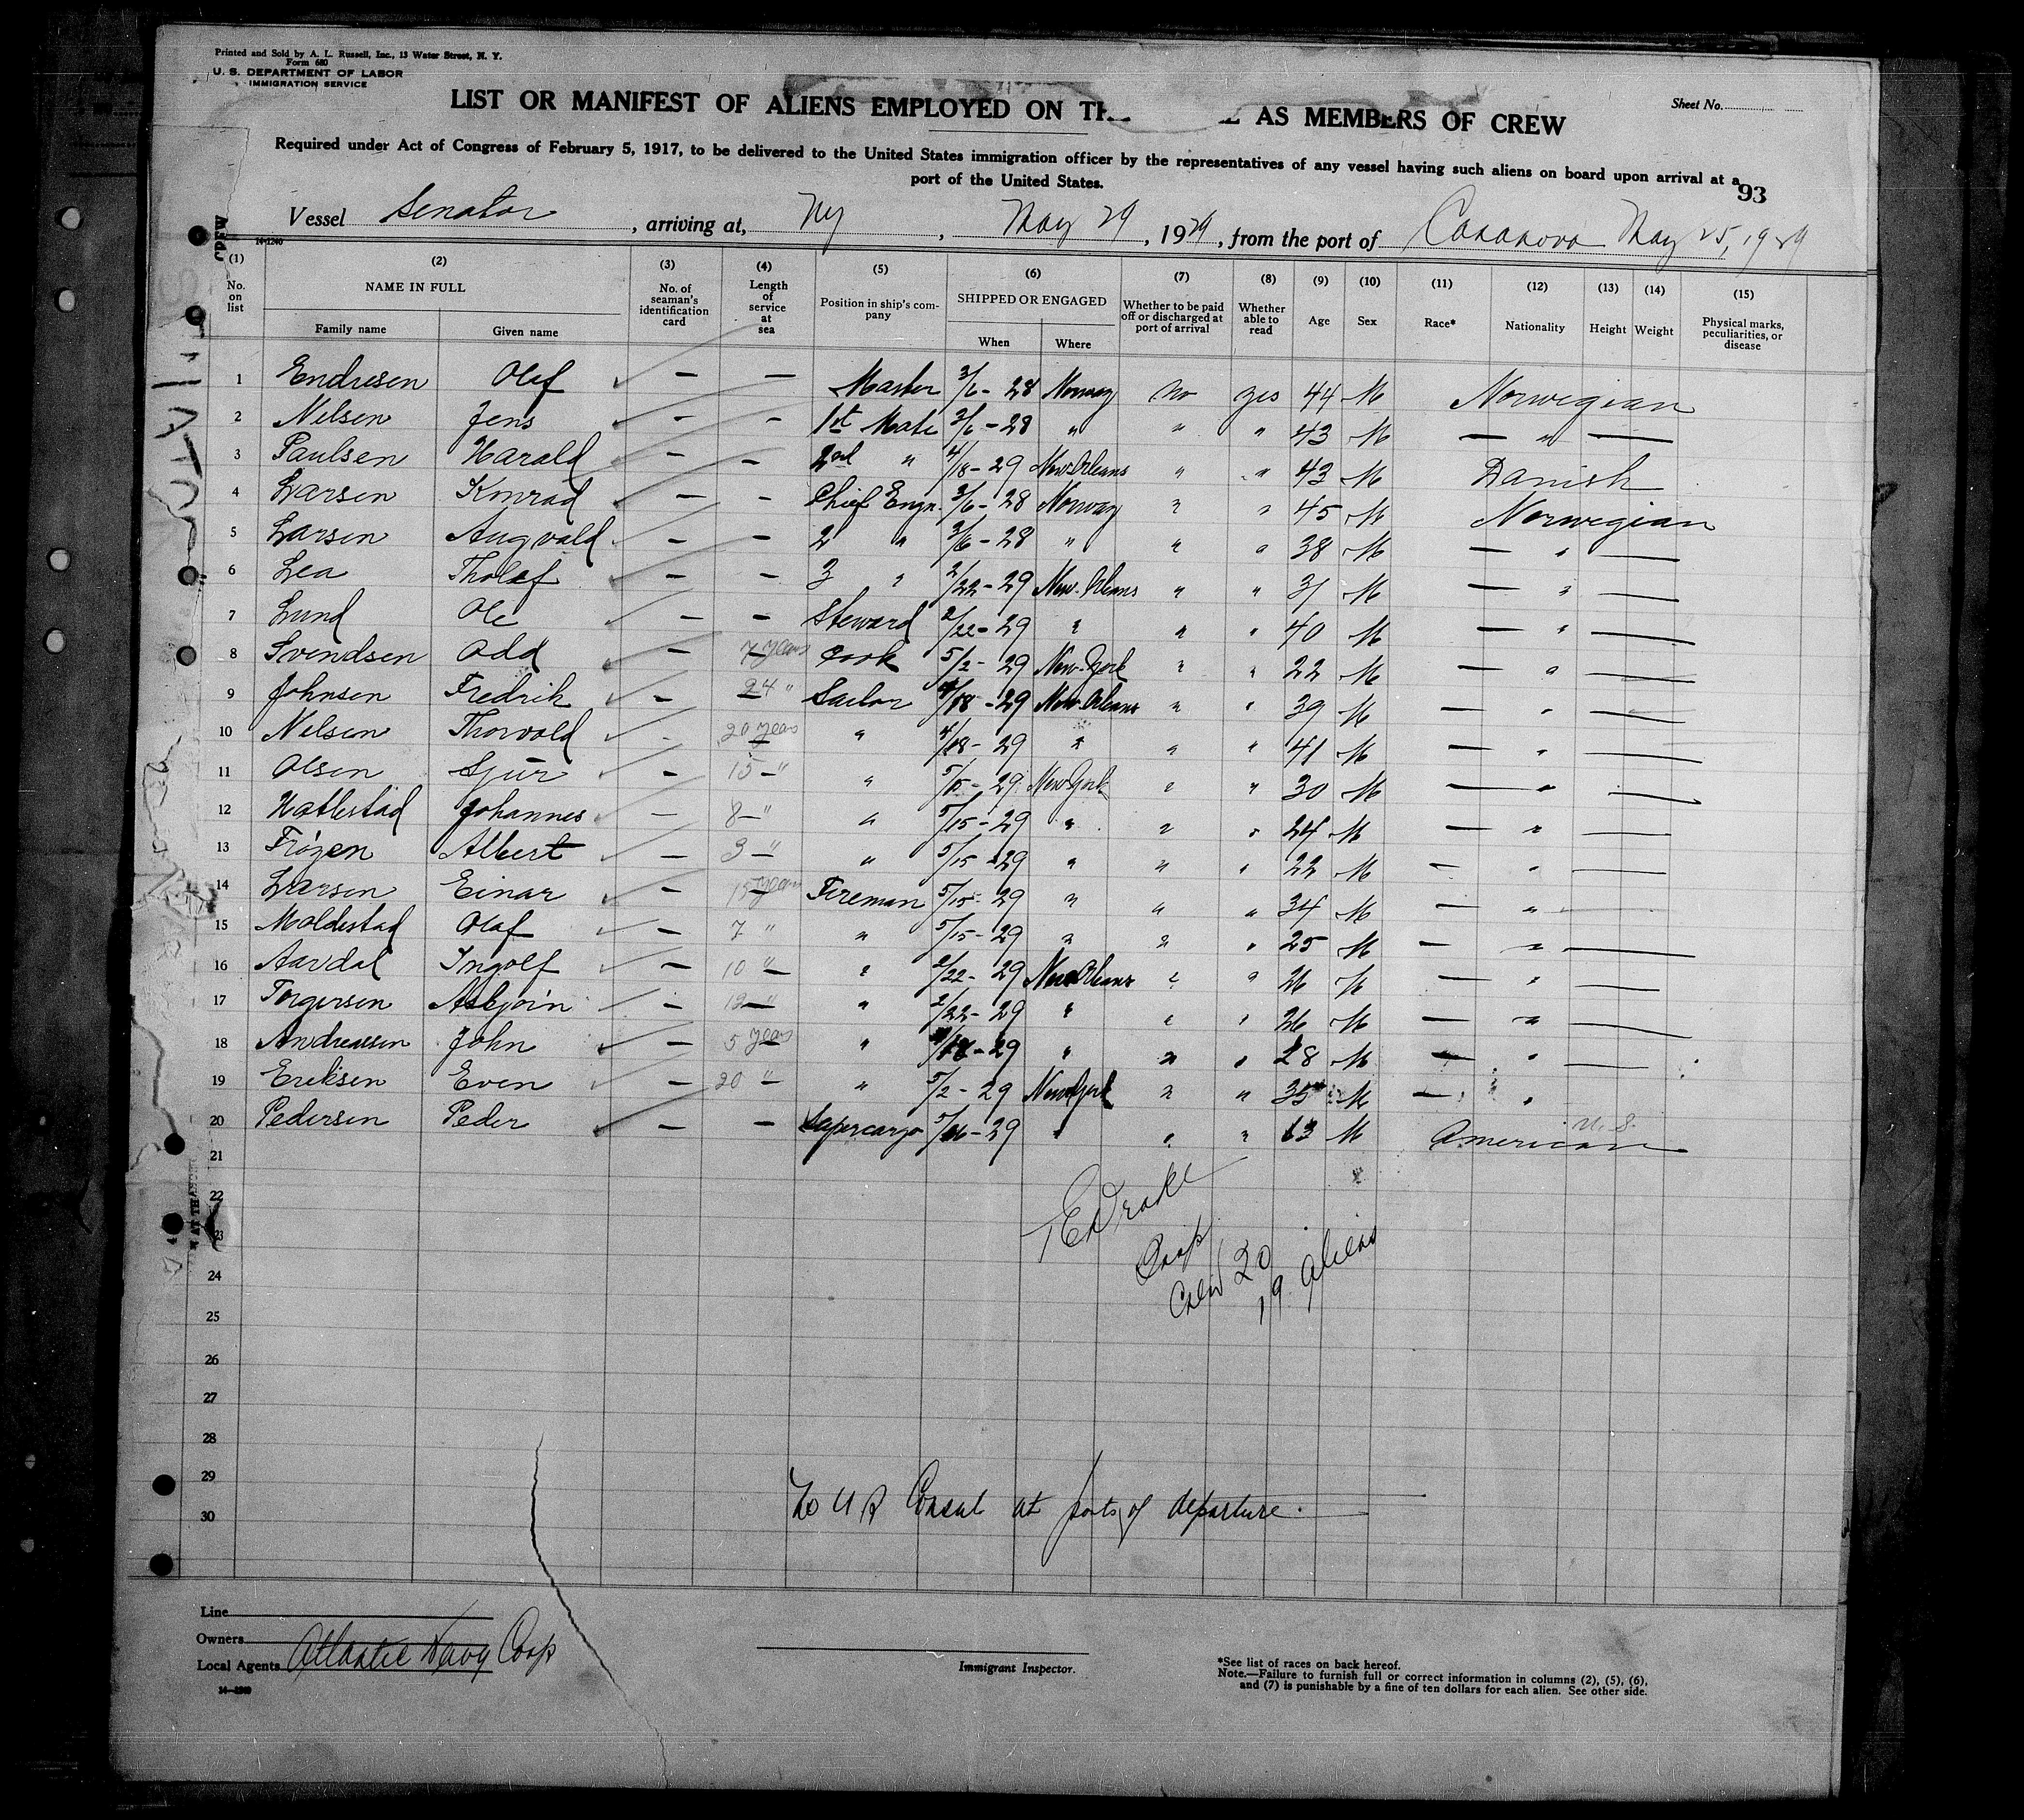 Printed and Sold by A. L. Russell, Inc., 13 Water Street, N. Y.
Form 680
U. S. DEPARTMENT OF LABOR
IMMIGRATION SERVICE
Sheet No.
LIST OR MANIFEST OF ALIENS EMPLOYED ON AS MEMBERS OF CREW
Required under Act of Congress of February 5, 1917, to be delivered to the United States immigration officer by the representatives of any vessel having such aliens on board upon arrival at a
port of the United States.
93
Vessel Senator, arriving at, NY, May 29, 1929, from the port of Casanova May 25, 1929
14-1240
(1) (2) (3) (4) (5) (6) (7) (8) (9) (10) (11) (12) (13) (14) (15)
No. on list NAME IN FULL Family name Given name No. of seaman's identification card Length of service at sea Position in ship's company SHIPPED OR ENGAGED When Where Whether to be paid off or discharged at port of arrival Whether able to read Age Sex Race* Nationality Height Weight Physical marks, peculiarities, or disease
1 Endresen Olaf — — Master 3/6-28 Norway no yes 44 M Norwegian
2 Nelsen Jens - - 1st Mate 3/6-28 " " " 43 M — " —
3 Paulsen Harald - - 2nd " 4/18-29 New Orleans " " 43 M Danish
4 Larsen Konrad - - Chief Engr. 3/6-28 Norway " " 45 M Norwegian
5 Larsen Augvald - - 2 " 3/6-28 " " " 38 M — " —
6 Lea Tholef - - 3 " 2/22-29 New-Orleans " " 31 M — " —
7 Lund Ole - - Steward 2/22-29 " " " 40 M — " —
8 Svendsen Odd - 7 years Cook 5/2-29 New-York " " 22 M — " —
9 Johnsen Fredrik - 24 " Sailor 4/18-29 New Orleans " " 39 M — " —
10 Nelsen Thorvald - 20 years " 4/18-29 " " " 41 M — " —
11 Olsen Sjur - 15 " " 5/15-29 New York " " 30 M — " —
12 Hatlestad Johannes - 8 " " 5/15-29 " " " 24 M — " —
13 Frözen Albert - 3 " " 5/15-29 " " " 22 M — " —
14 Larsen Einar - 15 years Fireman 5/15-29 " " " 34 M — " —
15 Moldestad Olaf - 7 " " 5/15-29 " " " 25 M — " —
16 Aardal Ingolf - 10 " " 2/22-29 New Orleans " " 26 M — " —
17 Torgersen Asbjorn - 12 " " 2/22-29 " " " 26 M — " —
18 Andreassen John - 5 years " -29 " " " 28 M — " —
19 Eriksen Even - 20 " " 5/2-29 New York " " 35 M — "
20 Pedersen Peder - - Supercargo 5/-29 " " " 63 M American U.S.
21
22
23
24
25
26
27
28
29
30
Drake
Corp
Crew 20
19 aliens
No U S Consul at ports of departure.
Line
Owners
Local Agents Atlantic Navg Corp
Immigrant Inspector.
*See list of races on back hereof.
Note.—Failure to furnish full or correct information in columns (2), (5), (6),
and (7) is punishable by a fine of ten dollars for each alien. See other side.